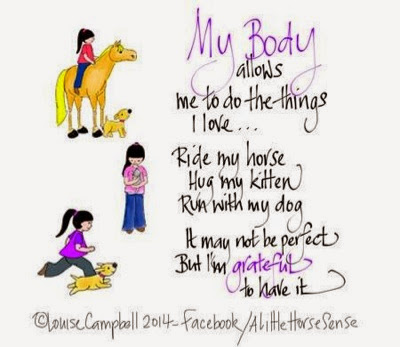 My Body
allows
me to do the things
I love...
Ride my horse
Hug my kitten
Run with my dog
It may not be perfect
But I'm grateful
to have it
©Louise Campbell 2014 - Facebook/A little Horse Sense